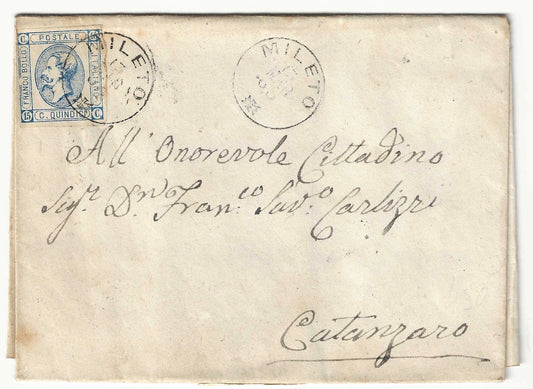 C FRANCO BOLLO
POSTALE
ITALIANO
15 C. QUINDICI C
MILETO
MILETO
All' Onorevole Cittadino
Sig.r D.n Fran.co Sav.o Carlizzi
Catanzaro